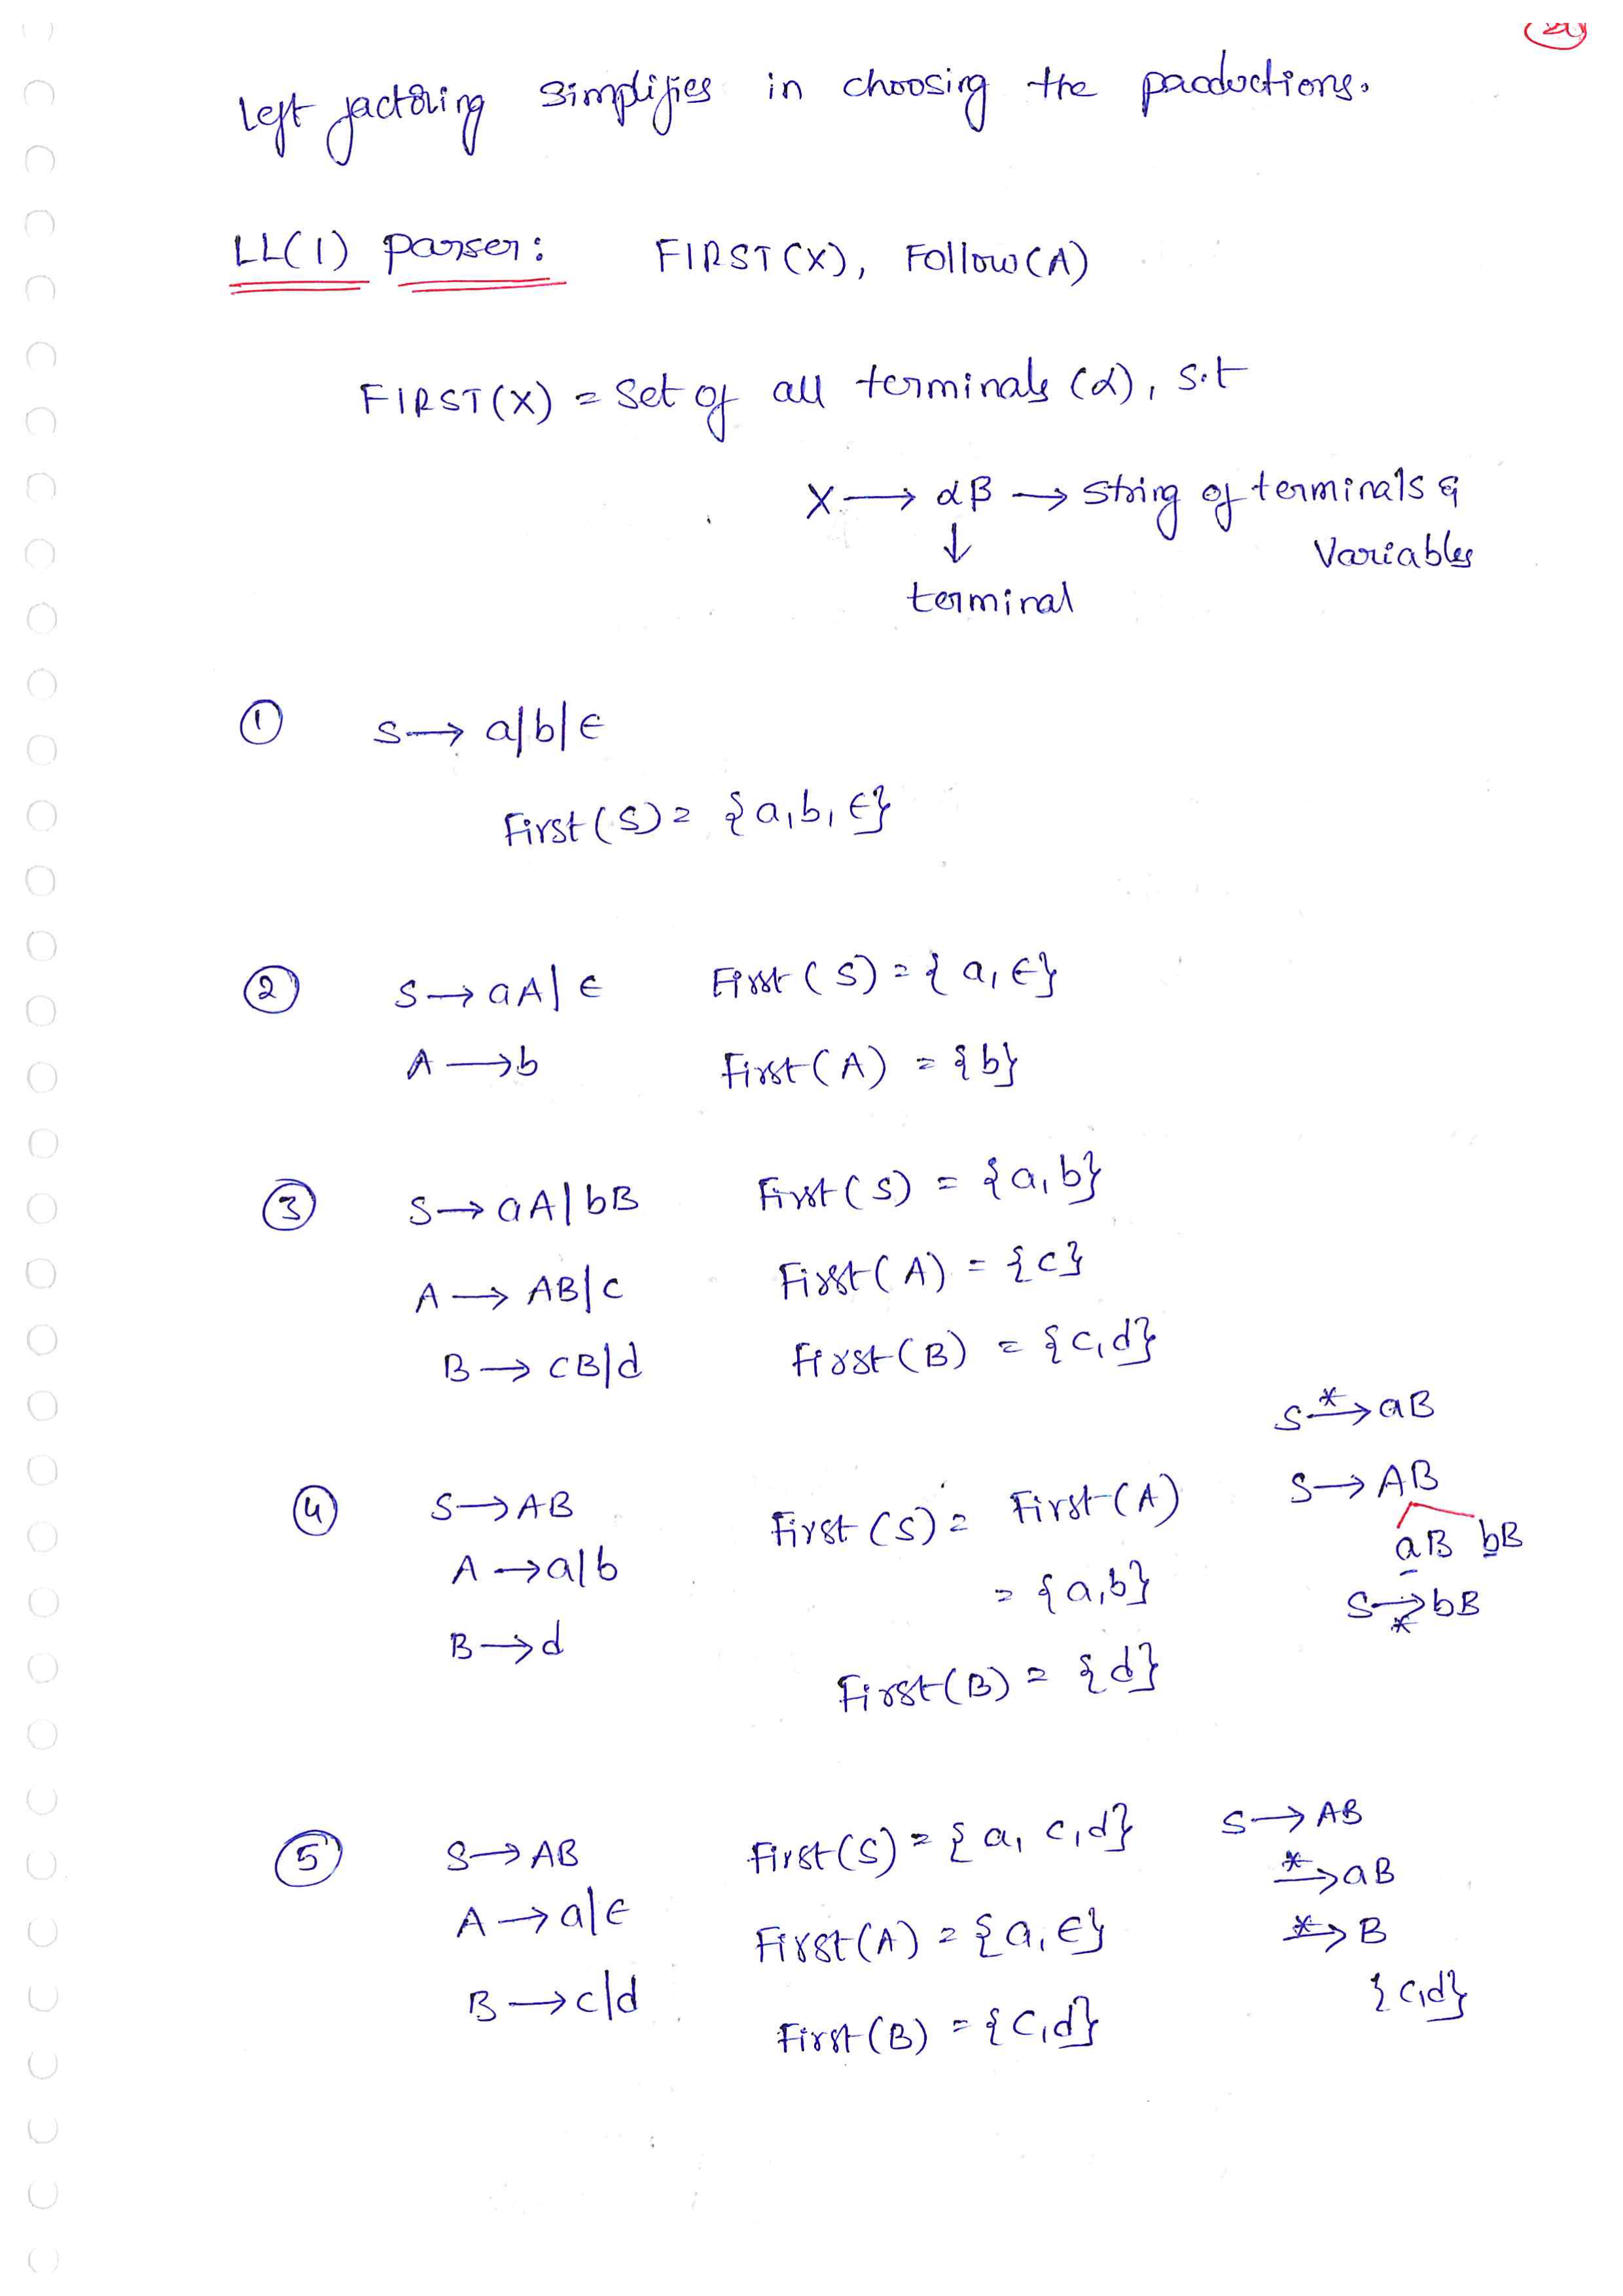 Left factoring simplifies in choosing the productions.
LL(1) parser: FIRST(X), Follow(A)
FIRST(X) = Set of all terminals (α), s.t
X → αβ → String of terminals &
↓ Variables
terminal
① S → a|b|ε
First(S) = {a, b, ε}
② S → aA|ε First(S) = {a, ε}
A → b First(A) = {b}
③ S → aA|bB First(S) = {a, b}
A → AB|c First(A) = {c}
B → cB|d First(B) = {c, d}
S *→ aB
④ S → AB First(S) = First(A) S → AB
A → a|b = {a, b} aB bB
B → d First(B) = {d} S →* bB
⑤ S → AB First(S) = {a, c, d} S → AB
*→ aB
A → a|ε First(A) = {a, ε} *→ B
B → c|d First(B) = {c, d} {c, d}